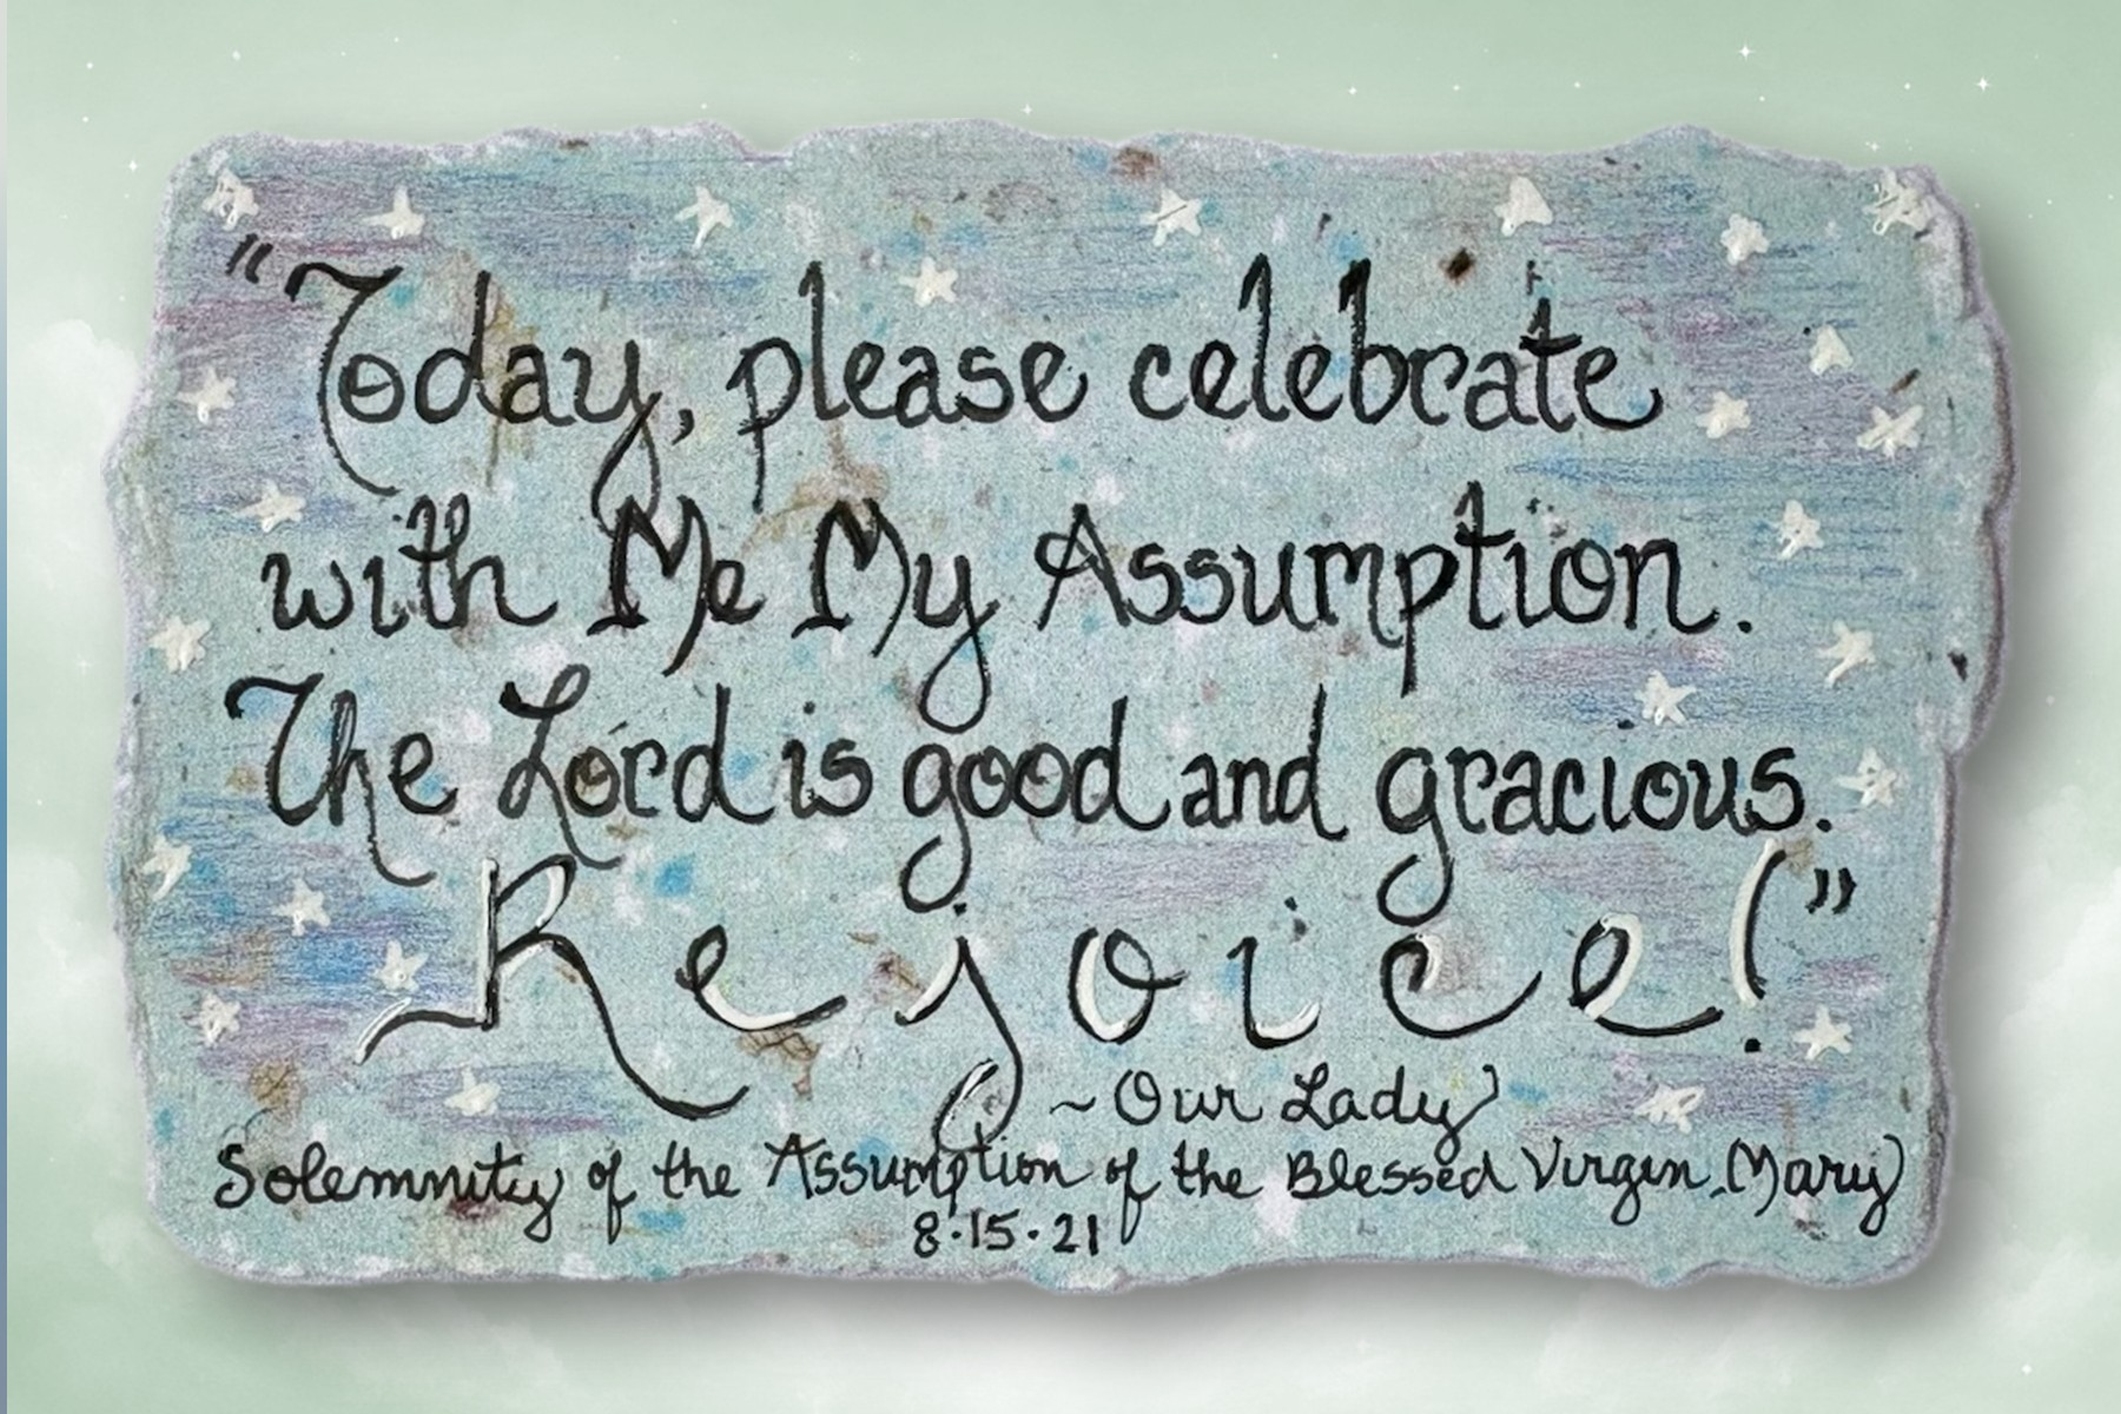 "Today, please celebrate
with Me My Assumption.
The Lord is good and gracious.
Rejoice!"
~Our Lady
Solemnity of the Assumption of the Blessed Virgin Mary
8·15·21